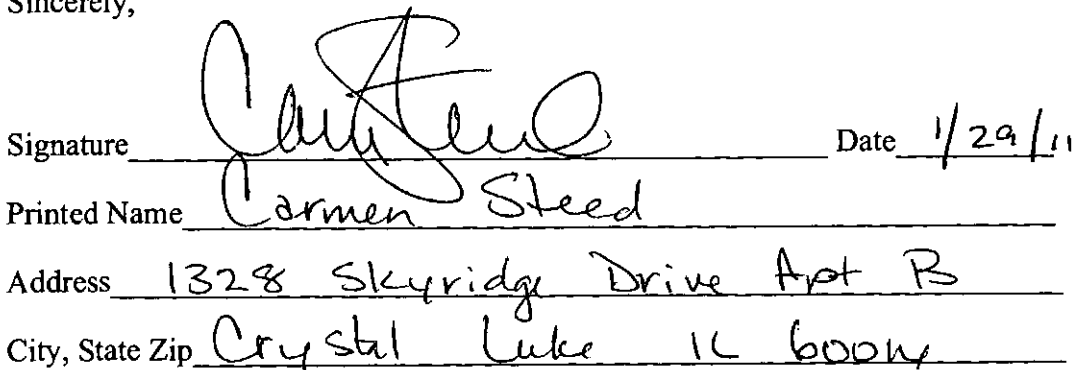 Sincerely,
Signature Date 1/29/11
Printed Name Carmen Steed
Address 1328 Skyridge Drive Apt B
City, State Zip Crystal Lake IL 60014